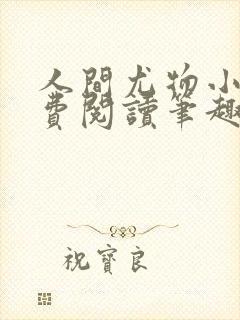 人間尤物小
費閱讀筆趣
祝寶良